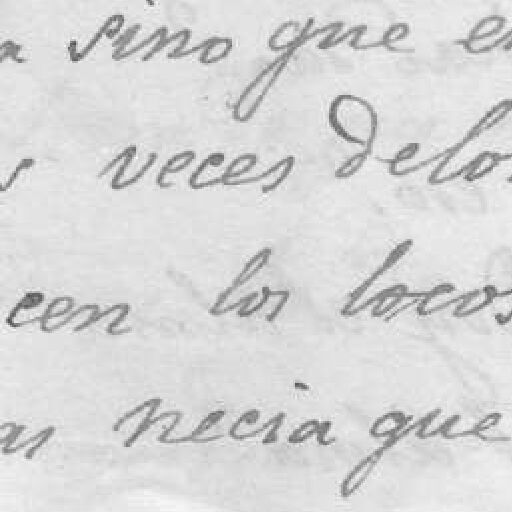 a sino que en
s veces delos
cen los locos
as necia que